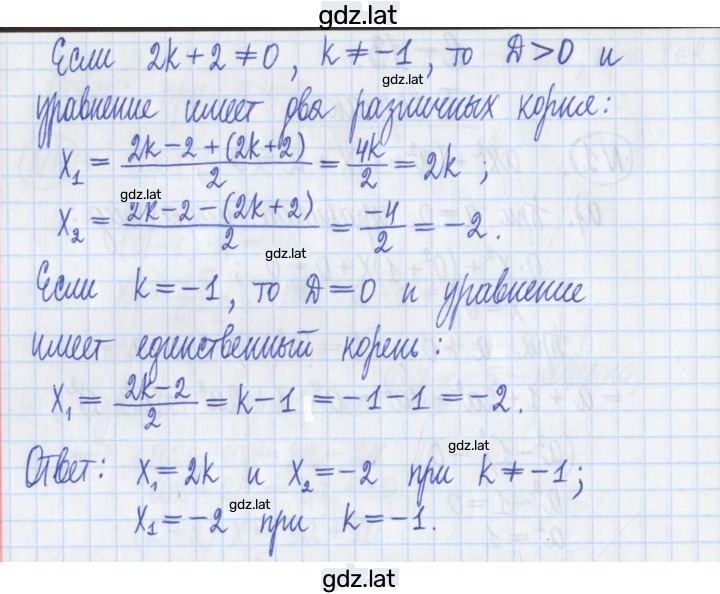 gdz.lat
Если 2k+2≠0, k≠-1, то D>0 и
уравнение имеет два различных корня:
x₁ = (2k-2+(2k+2))/2 = 4k/2 = 2k ;
gdz.lat
x₂ = (2k-2-(2k+2))/2 = -4/2 = -2.
gdz.lat
Если k=-1, то D=0 и уравнение
имеет единственный корень:
x₁ = (2k-2)/2 = k-1 = -1-1 = -2.
gdz.lat
Ответ: x₁=2k и x₂=-2 при k≠-1;
gdz.lat
x₁=-2 при k=-1.
gdz.lat